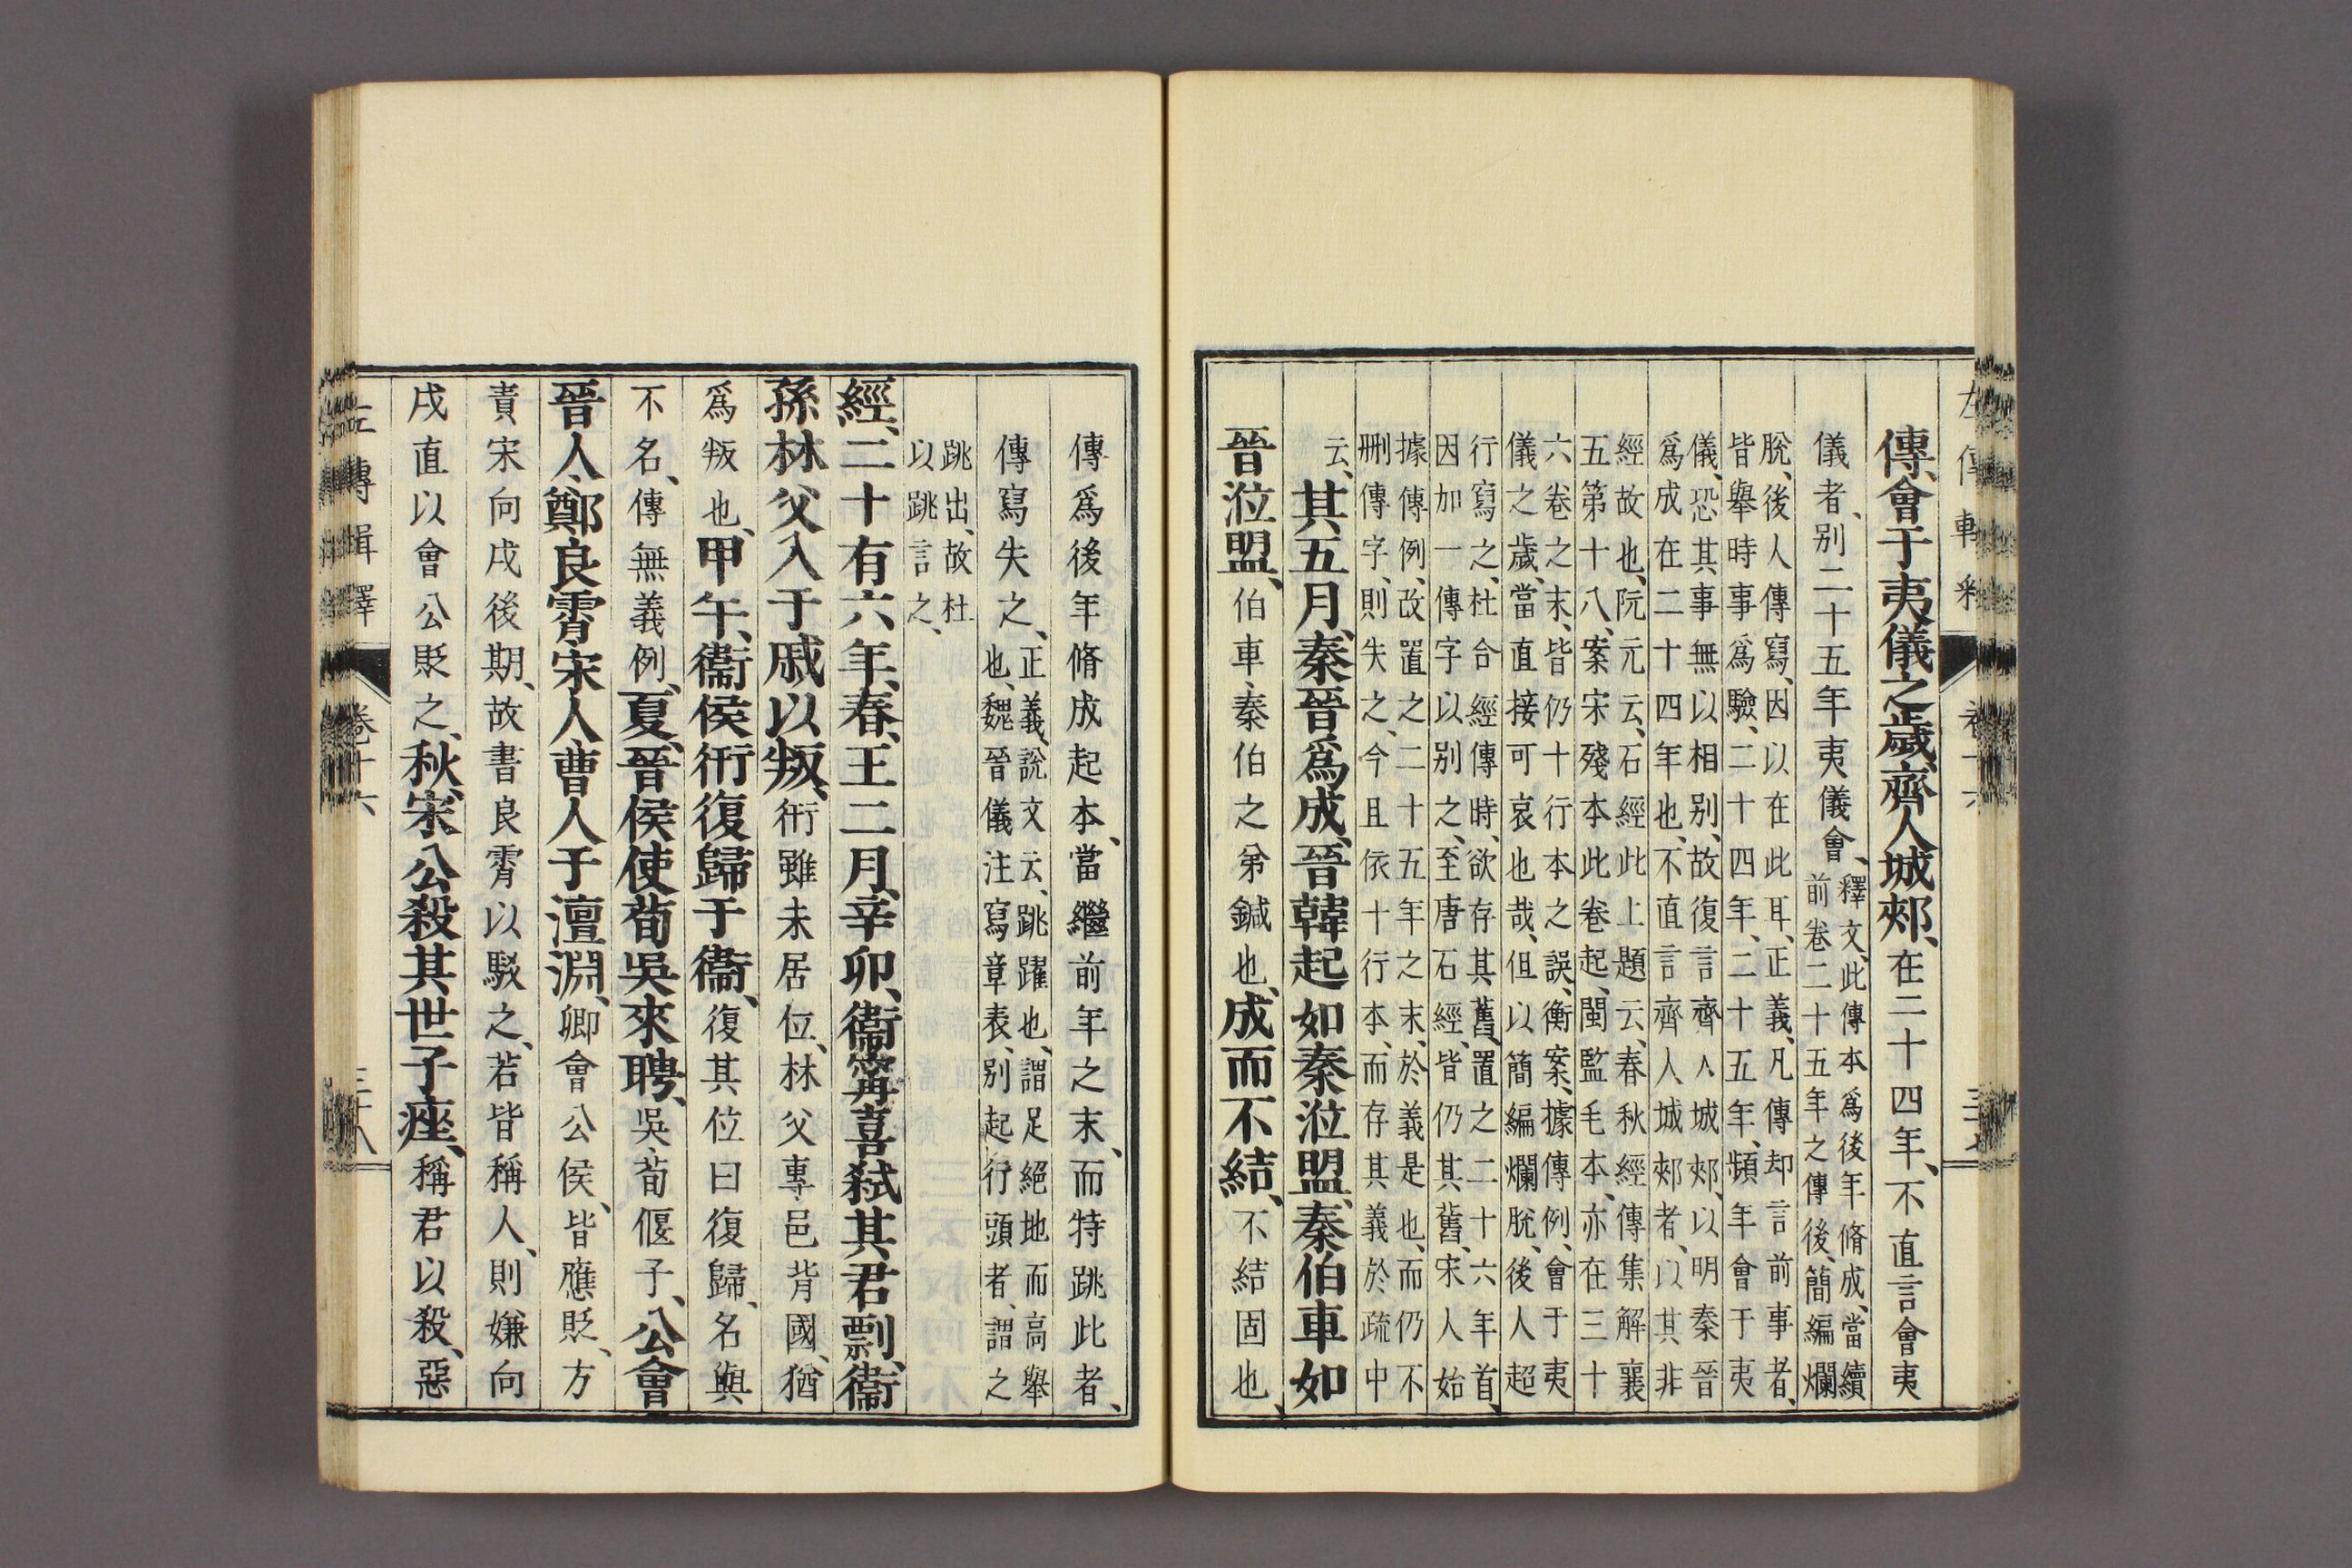 傳、會于夷儀之歲、齊人城郟、在二十四年、不直言會夷
儀者、別二十五年夷儀會、釋文、此傳本爲後年脩成、當續
前卷二十五年之傳後、簡編爛
脫、後人傳寫、因以在此耳、正義、凡傳却言前事者、
皆舉時事爲驗、二十四年、二十五年、頻年會于夷
儀、恐其事無以相別、故復言齊人城郟、以明秦晉
爲成在二十四年也、不直言齊人城郟者、以其非
經故也、阮元云、石經此上題云、春秋經傳集解襄
五第十八、案宋殘本此卷起、閩監毛本、亦在三十
六卷之末、皆仍十行本之誤、衡案、據傳例、會于夷
儀之歲、當直接可哀也哉、但以簡編爛脫、後人超
行寫之、杜合經傳時、欲存其舊、置之二十六年首、
因加一傳字以別之、至唐石經、皆仍其舊、宋人始
據傳例、改置之二十五年之末、於義是也、而仍不
刪傳字、則失之、今且依十行本、而存其義於疏中
云、其五月、秦晉爲成、晉韓起如秦涖盟、秦伯車如
晉涖盟、伯車、秦伯之弟鍼也、成而不結、不結固也、
左傳輯釋 卷十六
傳爲後年脩成起本、當繼前年之末、而特跳此者、
傳寫失之、正義、說文云、跳躍也、謂足絕地而高舉
也、魏晉儀注、寫章表、別起行頭者、謂之
跳出、故杜
以跳言之、
經、二十有六年、春、王二月、辛卯、衞甯喜弒其君剽、衞
孫林父入于戚以叛、衎雖未居位、林父專邑背國、猶
爲叛也、甲午、衞侯衎復歸于衞、復其位曰復歸、名與
不名、傳無義例、夏、晉侯使荀吳來聘、吳、荀偃子、公會
晉人、鄭良霄宋人曹人于澶淵、卿會公侯、皆應貶、方
責宋向戌後期、故書良霄以駁之、若皆稱人、則嫌向
戌直以會公貶之、秋、宋公殺其世子痤、稱君以殺、惡
左傳輯釋 卷十六 三十八